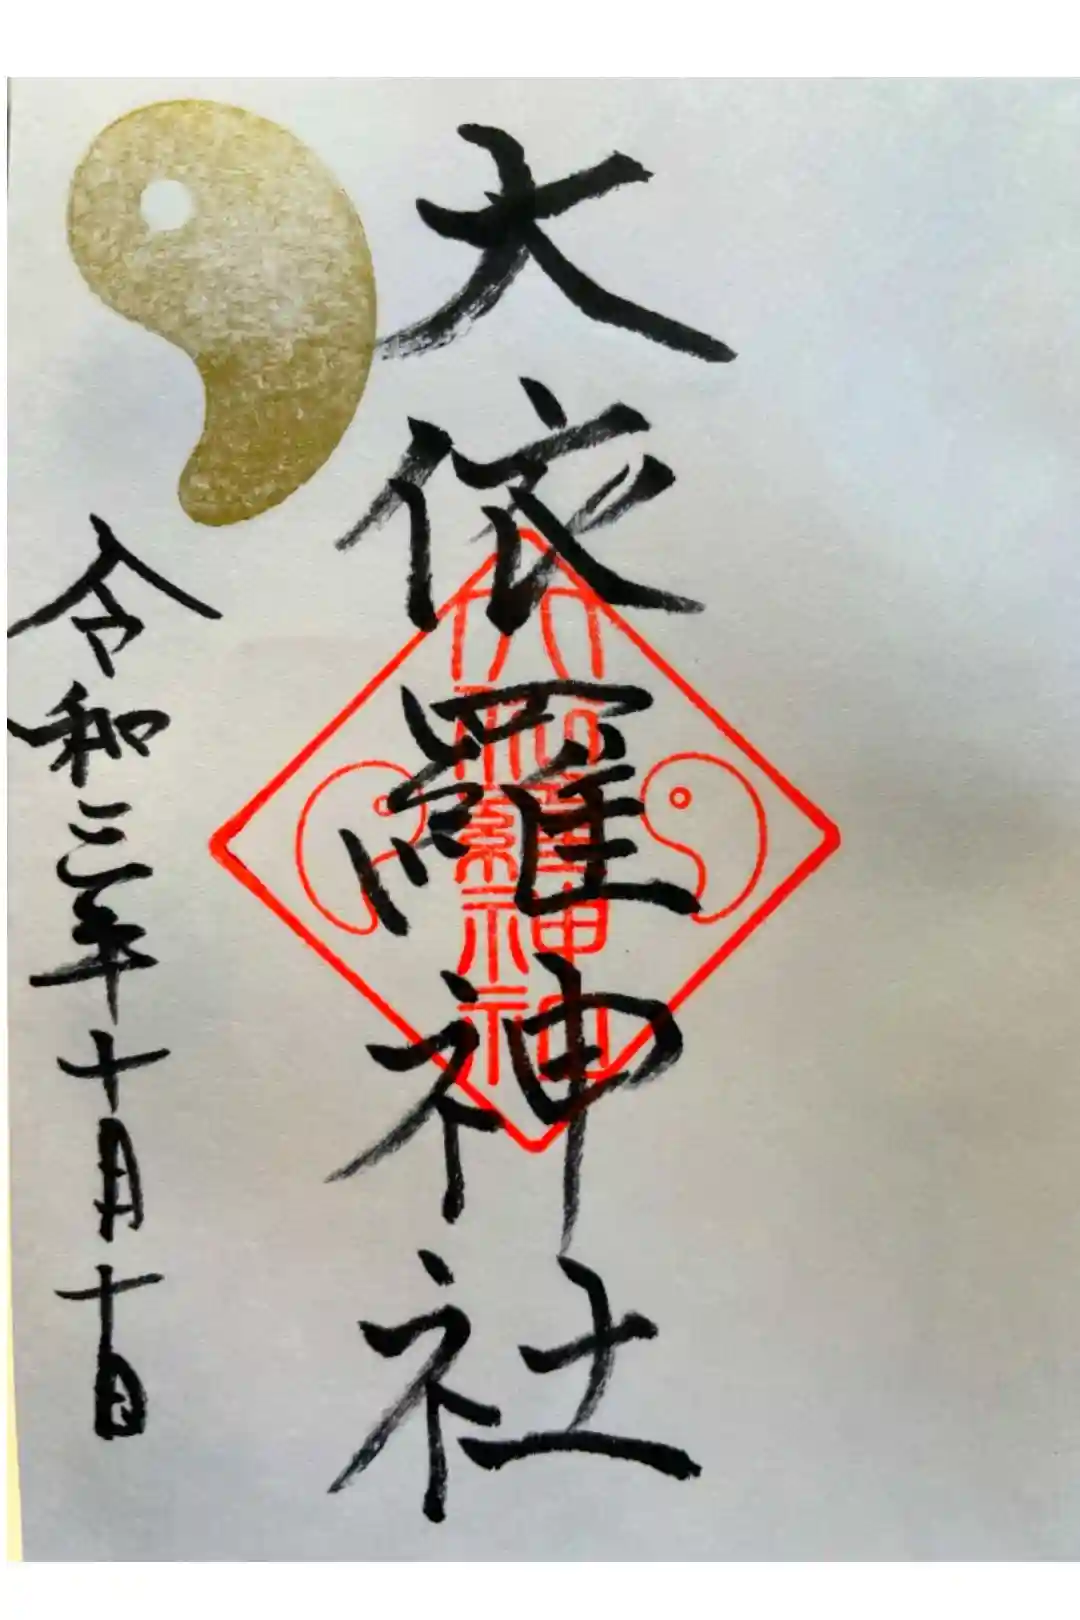 大依羅神社
令和三年十月十日
大依羅神社